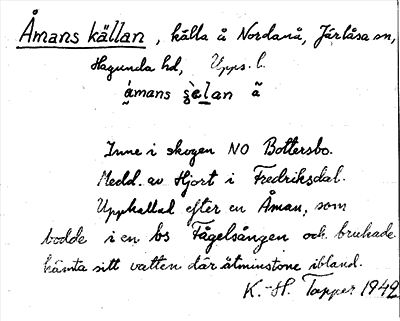 Åmans källan, källa å Nordanå, Järlåsa sn,
Hagunda hd, Upps. l.
åmans ɕèlan ã
Inne i skogen NO Bottersbo.
Medd. av Hjort i Fredriksdal.
Uppkallad efter en Åman, som
bodde i en bs Fågelsången och brukade
hämta sitt vatten där åtminstone ibland.
K.-H. Tapper 1949